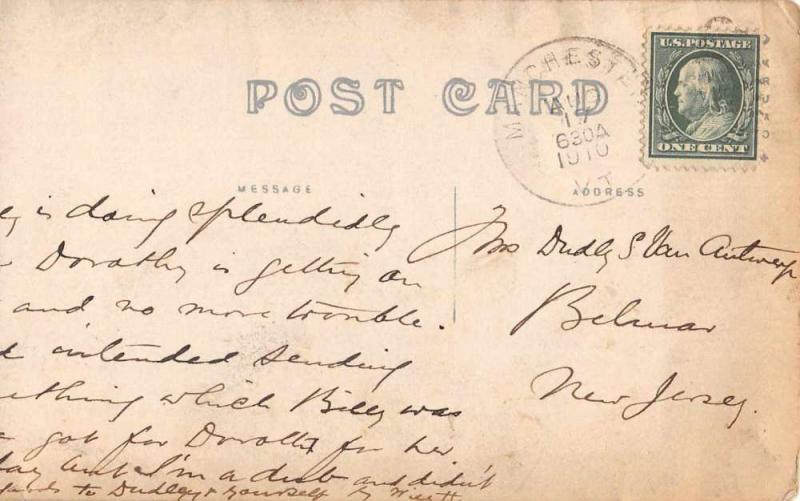 POST CARD
MANCHESTE
AUG
17
630A
1910
VT
U.S. POSTAGE
ONE CENT
MESSAGE
ADDRESS
is doing splendidly
Dorothy is getting on
and no more trouble.
intended sending
which Billy was
got for Dorothy for her
but I'm a dub and didn't
to Dudley & yourself
Mrs Dudley S Van Antwerp
Belmar
New Jersey.